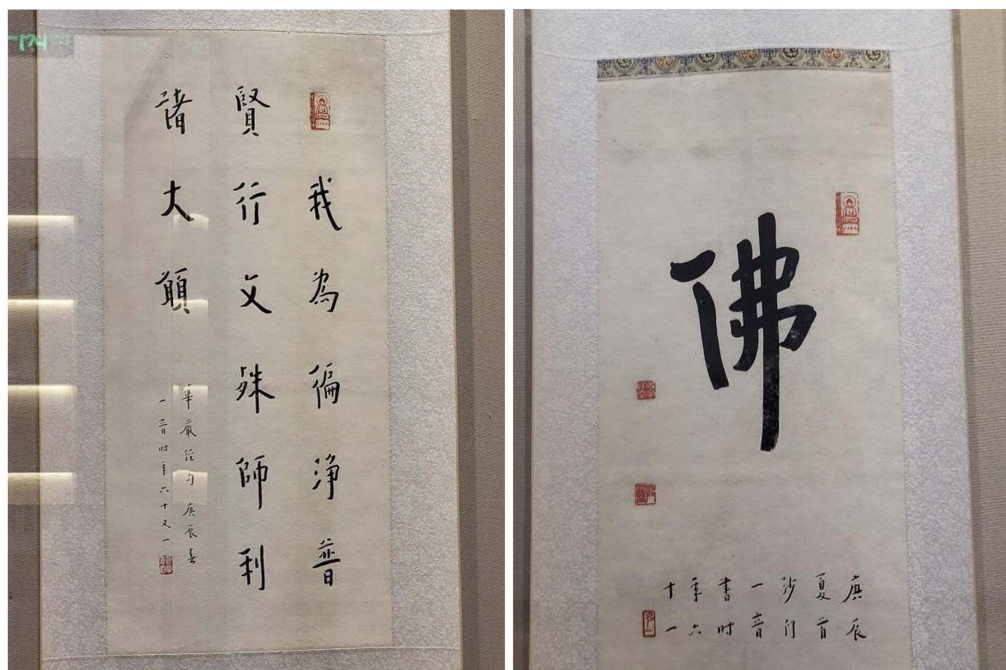 我為徧淨普
賢行文殊師利
諸大願
華嚴經句庚辰春
一音时年六十又一
佛
庚辰
夏首
沙门
一音
書时
年六
十一